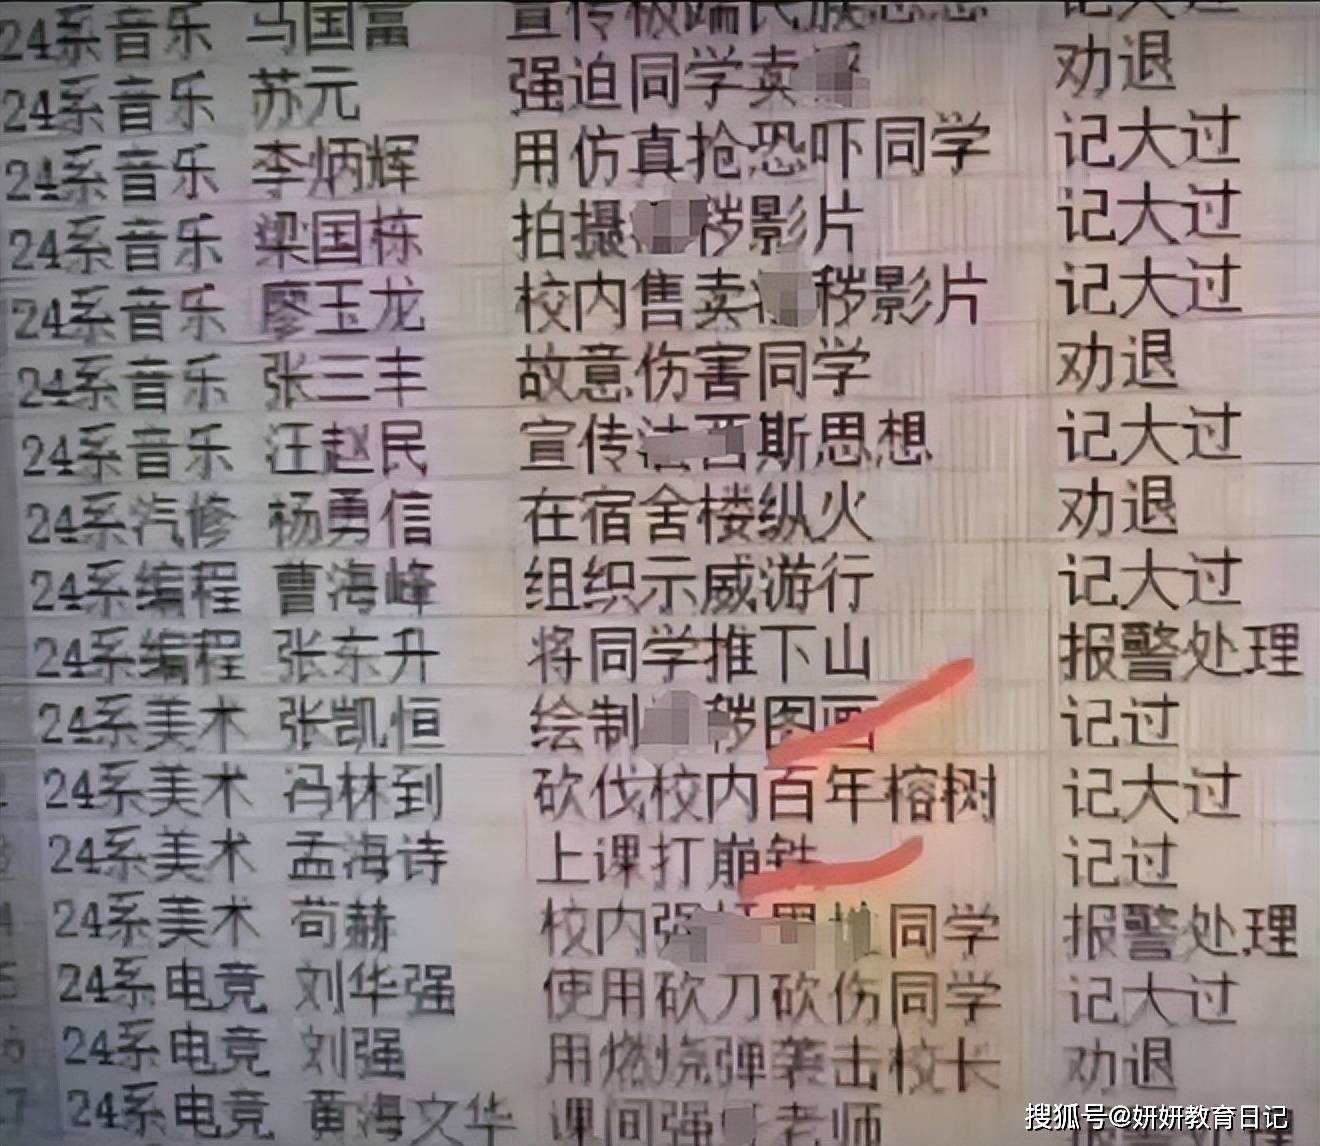 24系音乐 马国富 宣传极端民族思想 记大过
24系音乐 苏元 强迫同学卖 劝退
24系音乐 李炳辉 用仿真抢恐吓同学 记大过
24系音乐 梁国栋 拍摄秽影片 记大过
24系音乐 廖玉龙 校内售卖秽影片 记大过
24系音乐 张三丰 故意伤害同学 劝退
24系音乐 汪赵民 宣传法西斯思想 记大过
24系汽修 杨勇信 在宿舍楼纵火 劝退
24系编程 曹海峰 组织示威游行 记大过
24系编程 张东升 将同学推下山 报警处理
24系美术 张凯恒 绘制秽图画 记过
24系美术 冯林到 砍伐校内百年榕树 记大过
24系美术 孟海诗 上课打崩铁 记过
24系美术 苟赫 校内强同学 报警处理
24系电竞 刘华强 使用砍刀砍伤同学 记大过
24系电竞 刘强 用燃烧弹袭击校长 劝退
24系电竞 黄海文华 课间强老师
搜狐号@妍妍教育日记